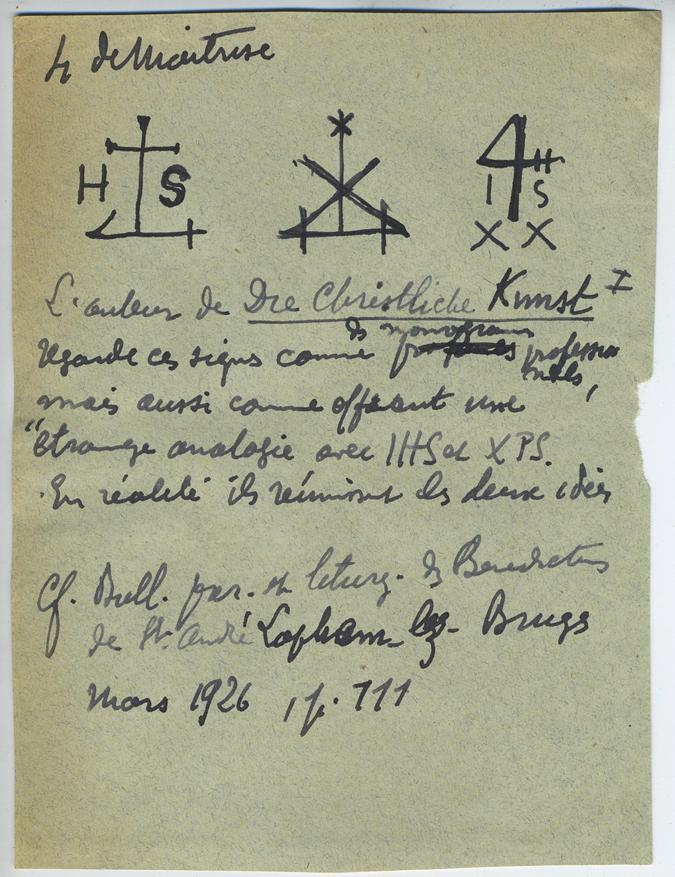 4 de Maîtrise
H S
4 H
I S
X X
L'auteur de Die Christliche Kunst I
regarde ces signes comme
ds monogrammes professionnels,
mais aussi comme offrant une
"étrange analogie avec IHS et XPS.
En réalité ils réunissent les deux idées
Cf. Bull. par. et liturg. ds Benedictins
de St. André Lophem-lez-Bruges
Mars 1926, p. 111